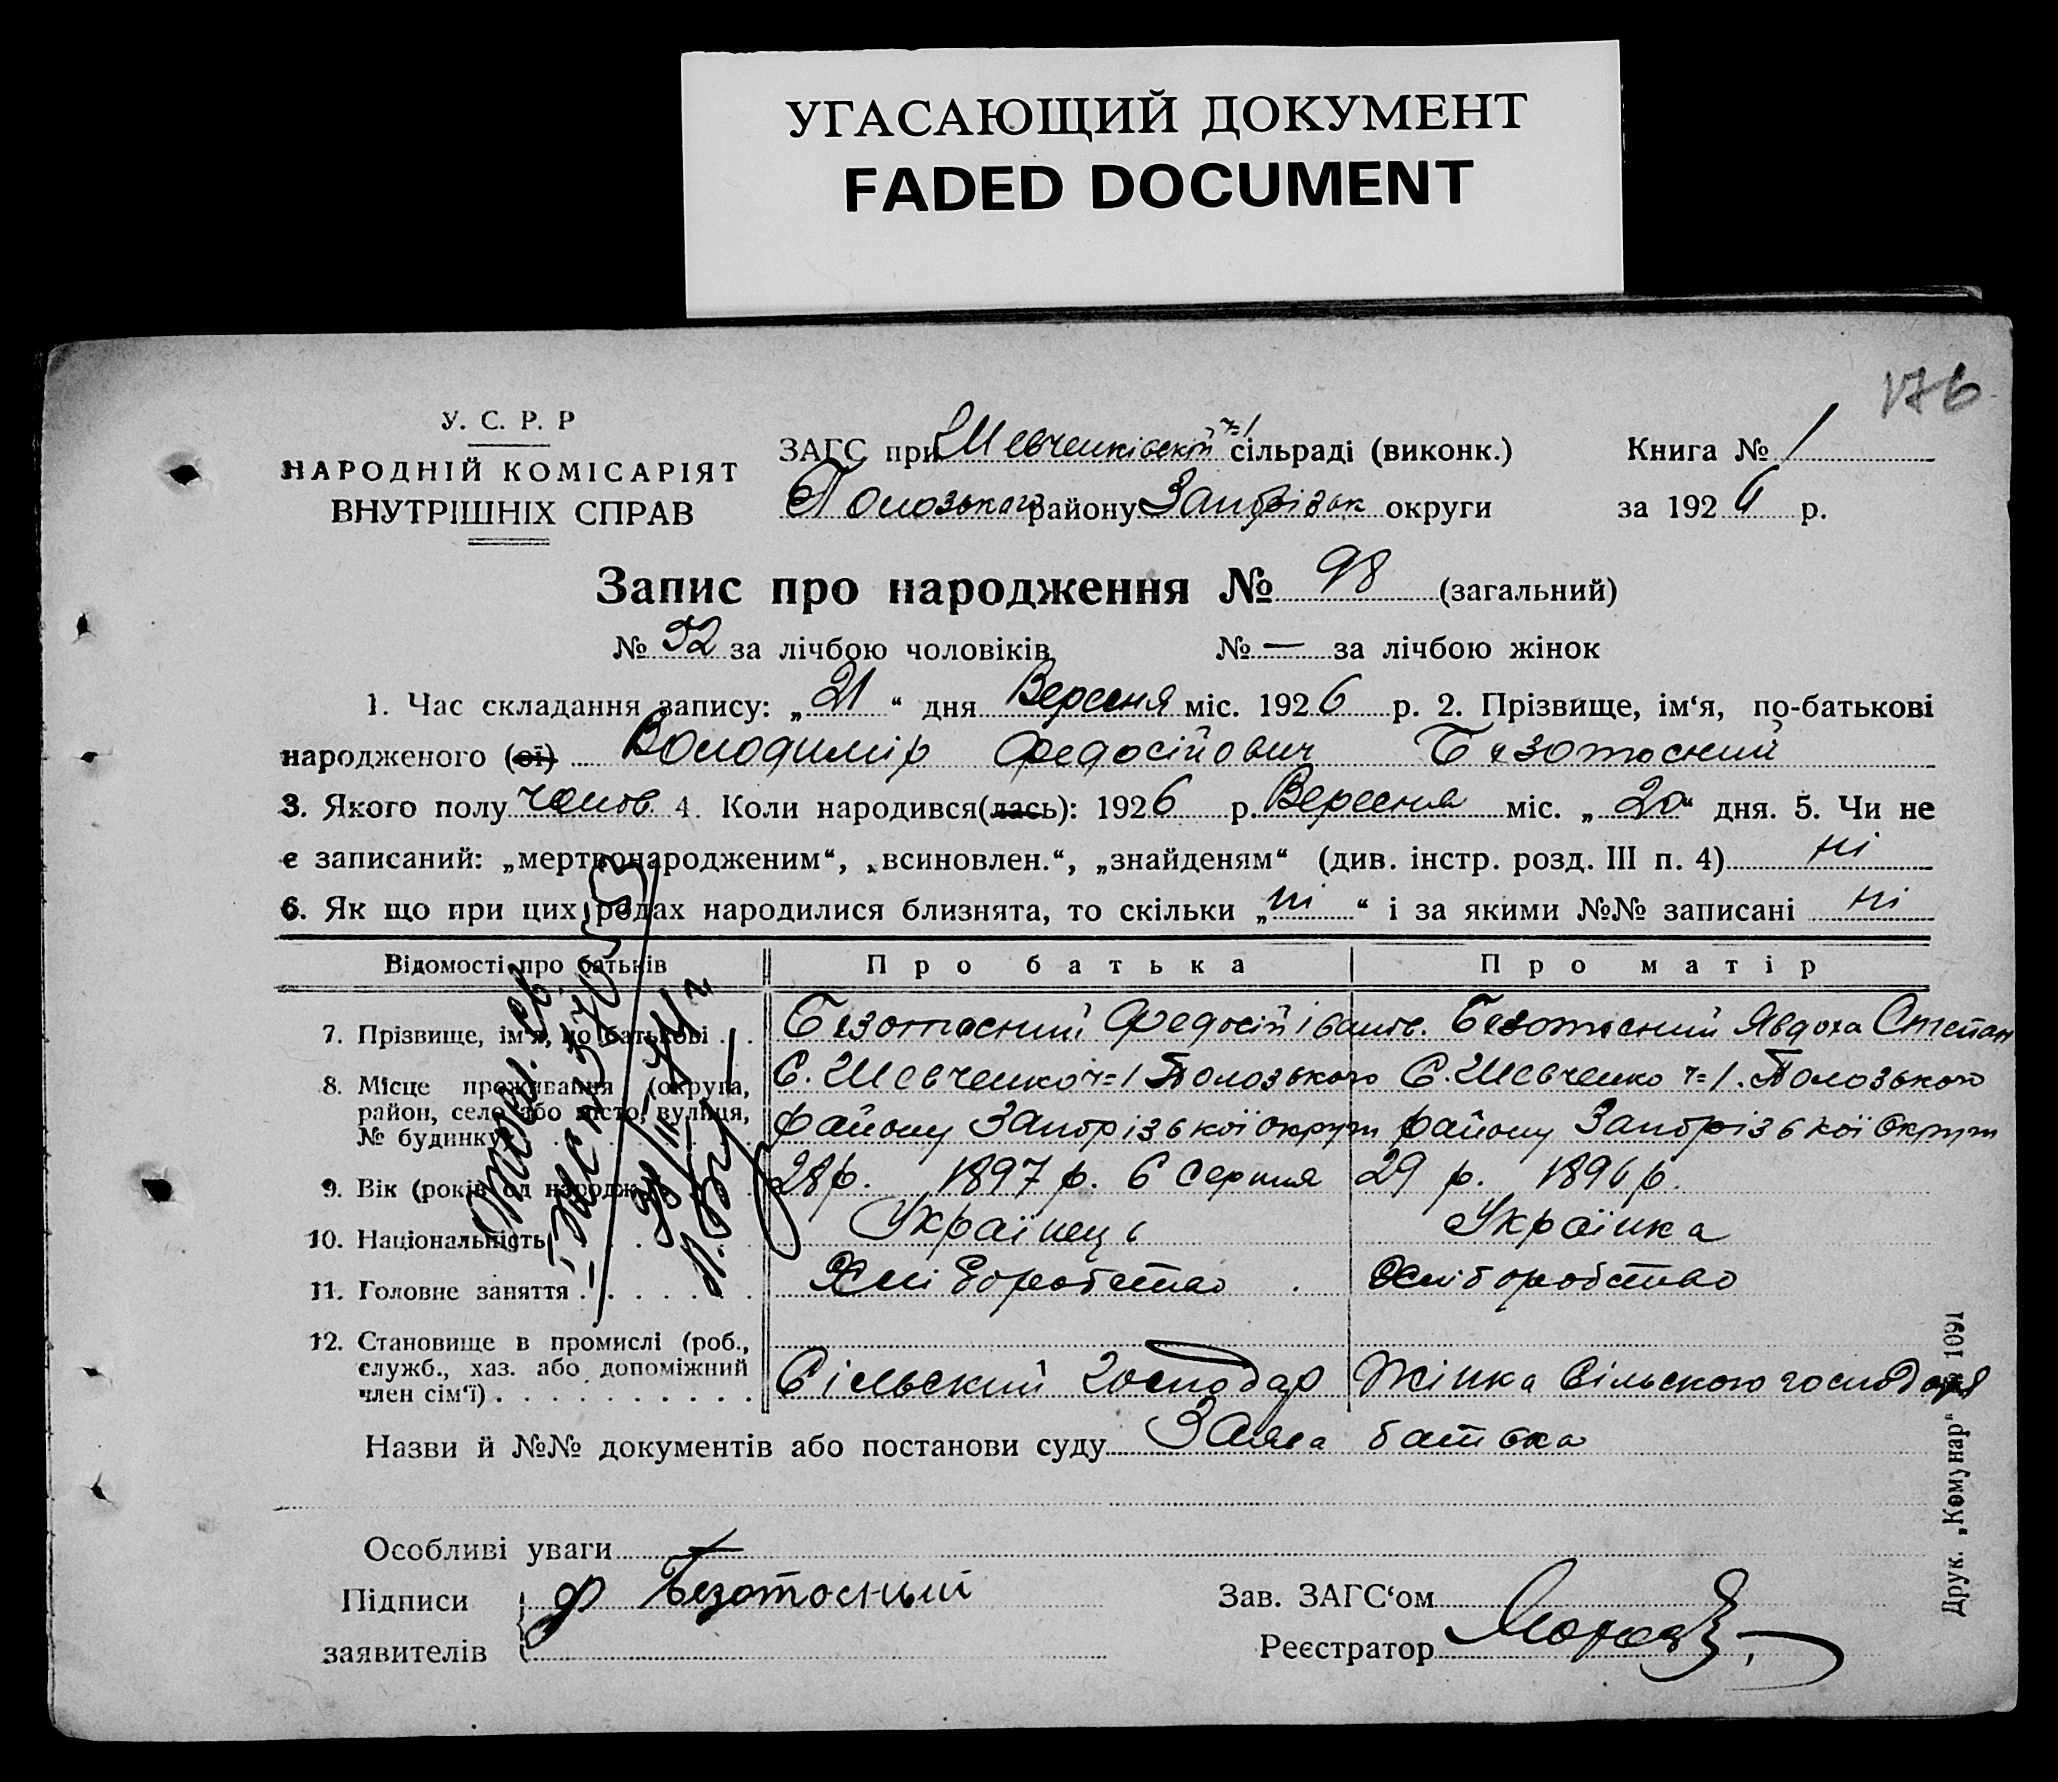 УГАСАЮЩИЙ ДОКУМЕНТ
FADED DOCUMENT
176
У. С. Р. Р
НАРОДНІЙ КОМІСАРІЯТ
ВНУТРІШНІХ СПРАВ
ЗАГС при Шевченківскій ч=1 сільраді (виконк.)
Полозького району Запорізьк округи
Книга № 1
за 1926 р.
Запис про народження № 98 (загальний)
№ 52 за лічбою чоловіків № — за лічбою жінок
1. Час складання запису: „21“ дня Вересня міс. 1926 р. 2. Прізвище, ім‘я, по-батькові
народженого (ої) Володимір Федосійович Безотосний
3. Якого полу чолов. 4. Коли народився(лась): 1926 р. Вересня міс. „20“ дня. 5. Чи не
є записаний: „мертвонародженим“, „всиновлен.“, „знайденям“ (див. інстр. розд. III п. 4) ні
6. Як що при цих родах народилися близнята, то скільки „ні“ і за якими №№ записані ні
Відомості про батьків Про батька Про матір
7. Прізвище, ім‘я, по батькові . . Безотосний Федосій Іванов. Безотосний Явдоха Степан
8. Місце проживання (округа, район, село або місто, вулиця, № будинку)
С. Шевченко ч=1 Полозького С. Шевченко ч=1. Полозького
району Запорізької округи району Запорізької округи
9. Вік (років од народж. 28 р. 1897 р. 6 Серпня 29 р. 1896 р.
10. Національність Українець Українка
11. Головне заняття Хліборобство Хліборобство
12. Становище в промислі (роб.,
служб., хаз. або допоміжний
член сім‘ї) Сільский господар Жінка Сільского господаря
Назви й №№ документів або постанови суду Заява батька
Особливі уваги —
Підписи Ф Безотосный
заявителів
Зав. ЗАГС‘ом
Реєстратор
Друк. „Комунар“ 1091